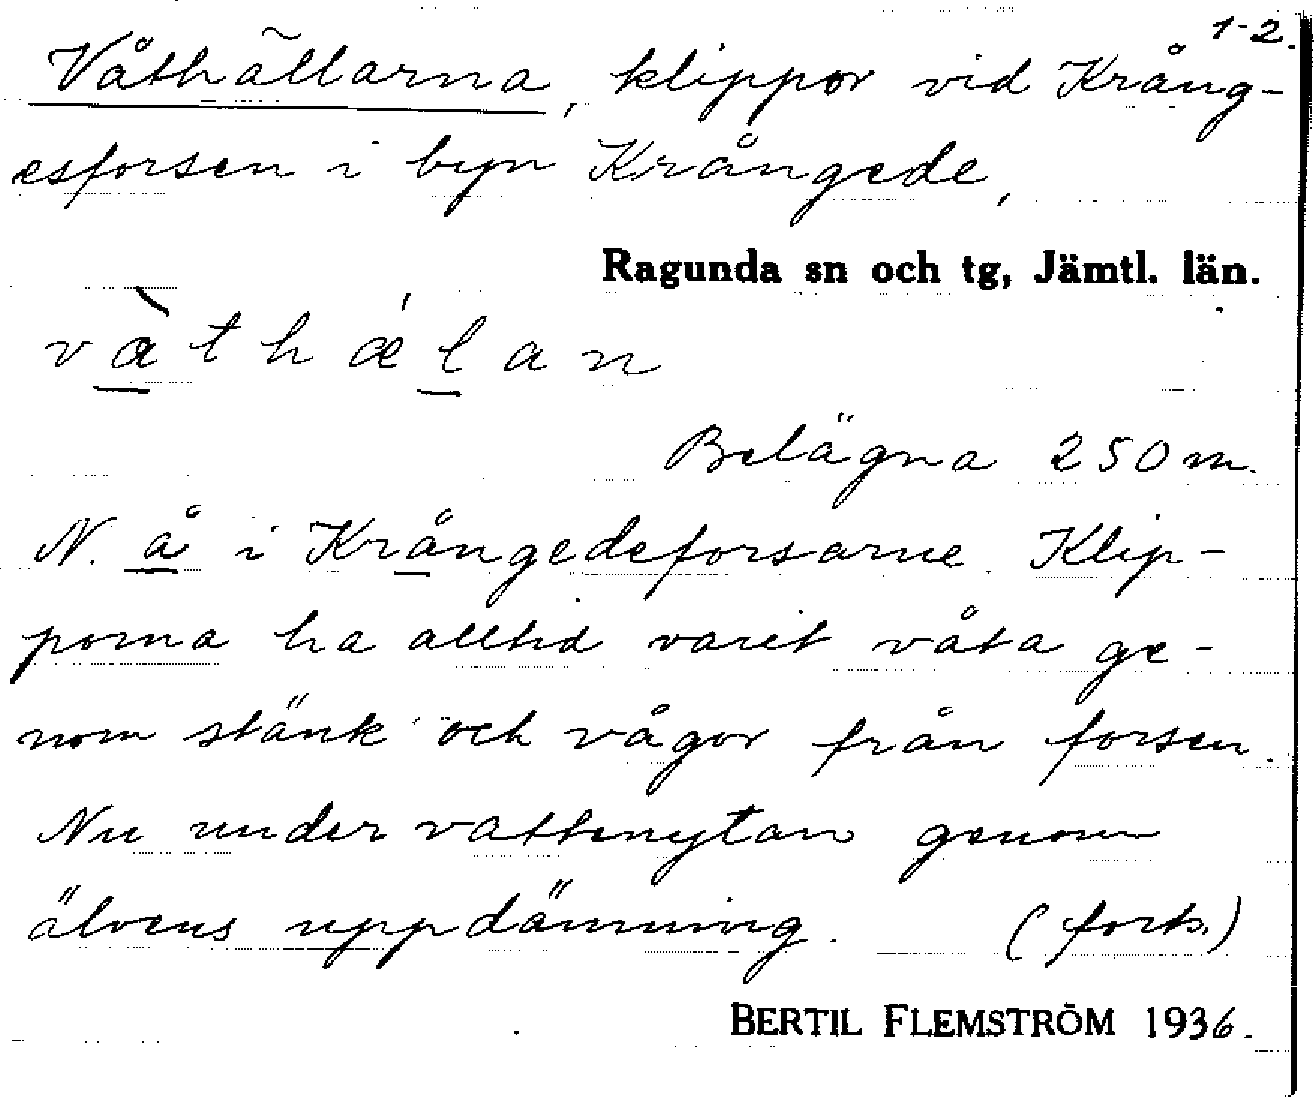 1-2.
Våthällarna, klippor vid Krång-
esforsen i byn Krångede,
Ragunda sn och tg, Jämtl. län.
våthǽlan
Belägna 250 m.
N. å i Krångedeforsarne. Klip-
porna ha alltid varit våta ge-
nom stänk och vågor från forsen.
Nu under vattenytan genom
älvens uppdämning. (forts.)
BERTIL FLEMSTRÖM 1936.